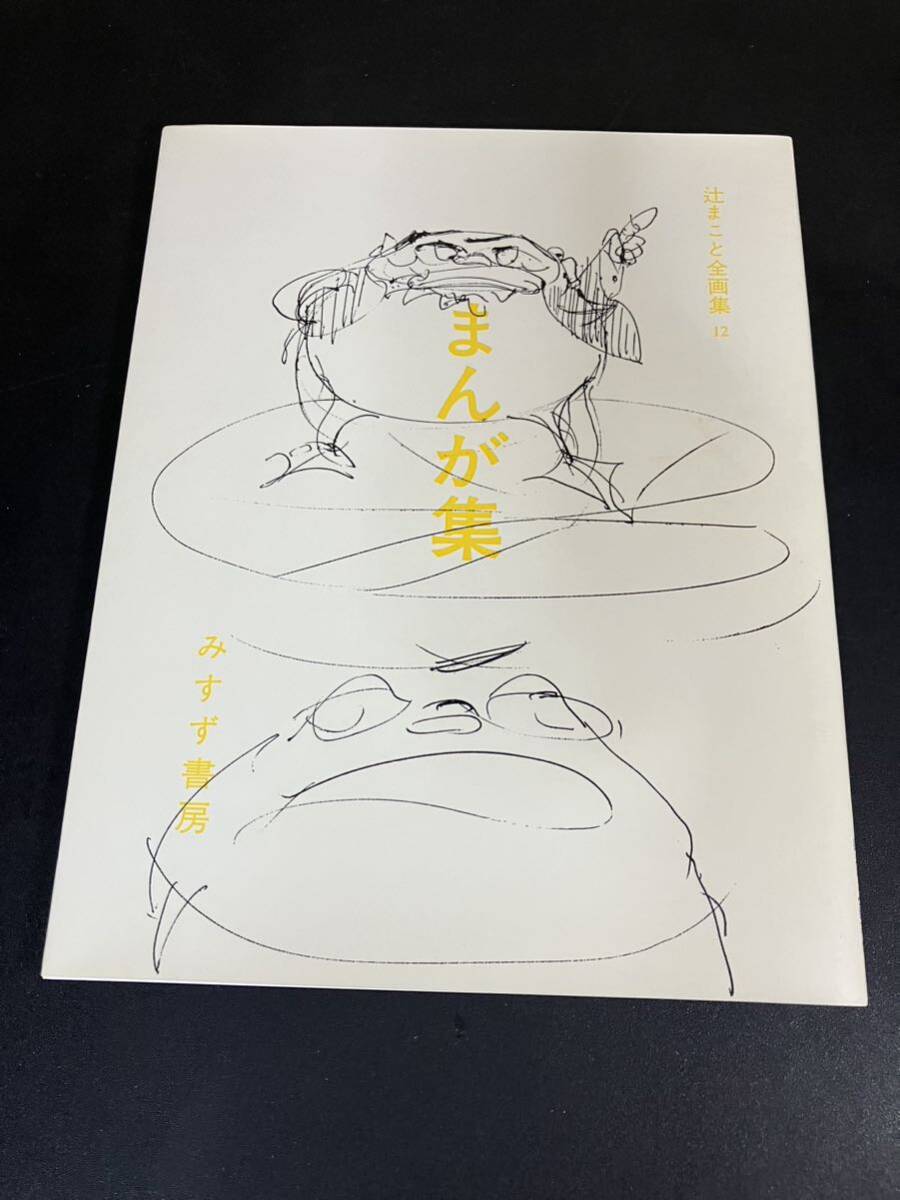 辻まこと全画集 12
まんが集
みすず書房